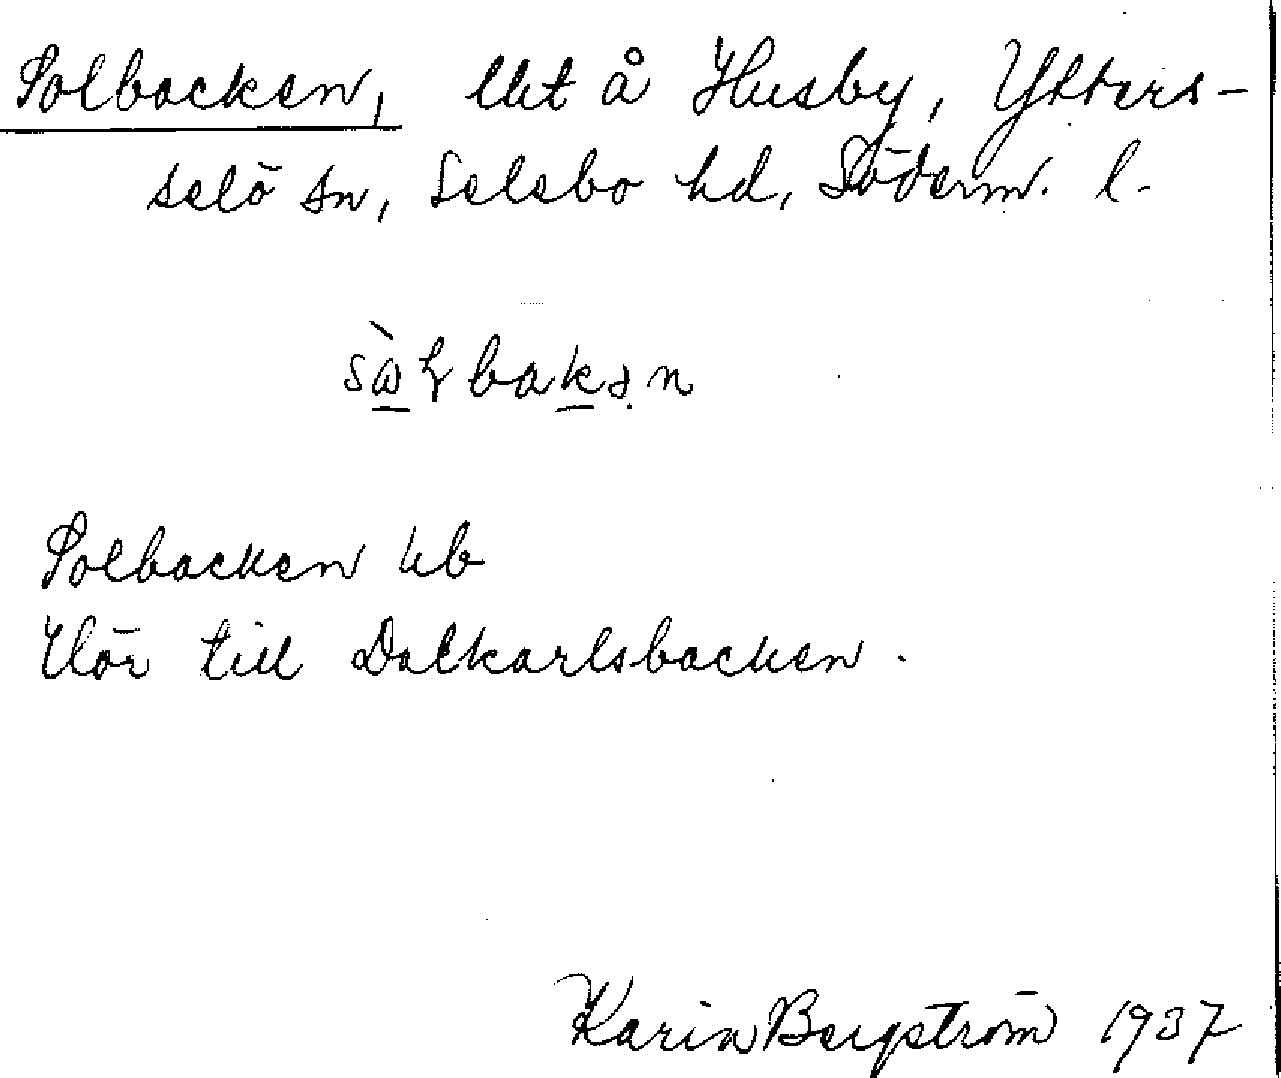 Solbacken, lht å Husby, Ytters-
selö sn, Selebo hd, Söderm. l.
Solbacken hb
Hör till Dalkarlsbacken.
Karin Bergström 1937